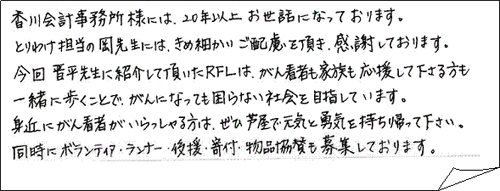 香川会計事務所様には、20年以上お世話になっております。
とりわけ担当の岡先生には、きめ細かいご配慮を頂き、感謝しております。
今回晋平先生に紹介して頂いたRFLは、がん看者も家族も応援して下さる方も
一緒に歩くことで、がんになっても困らない社会を目指しています。
身近にがん看者がいらっしゃる方は、ぜひ芦屋で元気と勇気を持ち帰って下さい。
同時にボランティア・ランナー・後援・寄付・物品協賛も募集しております。